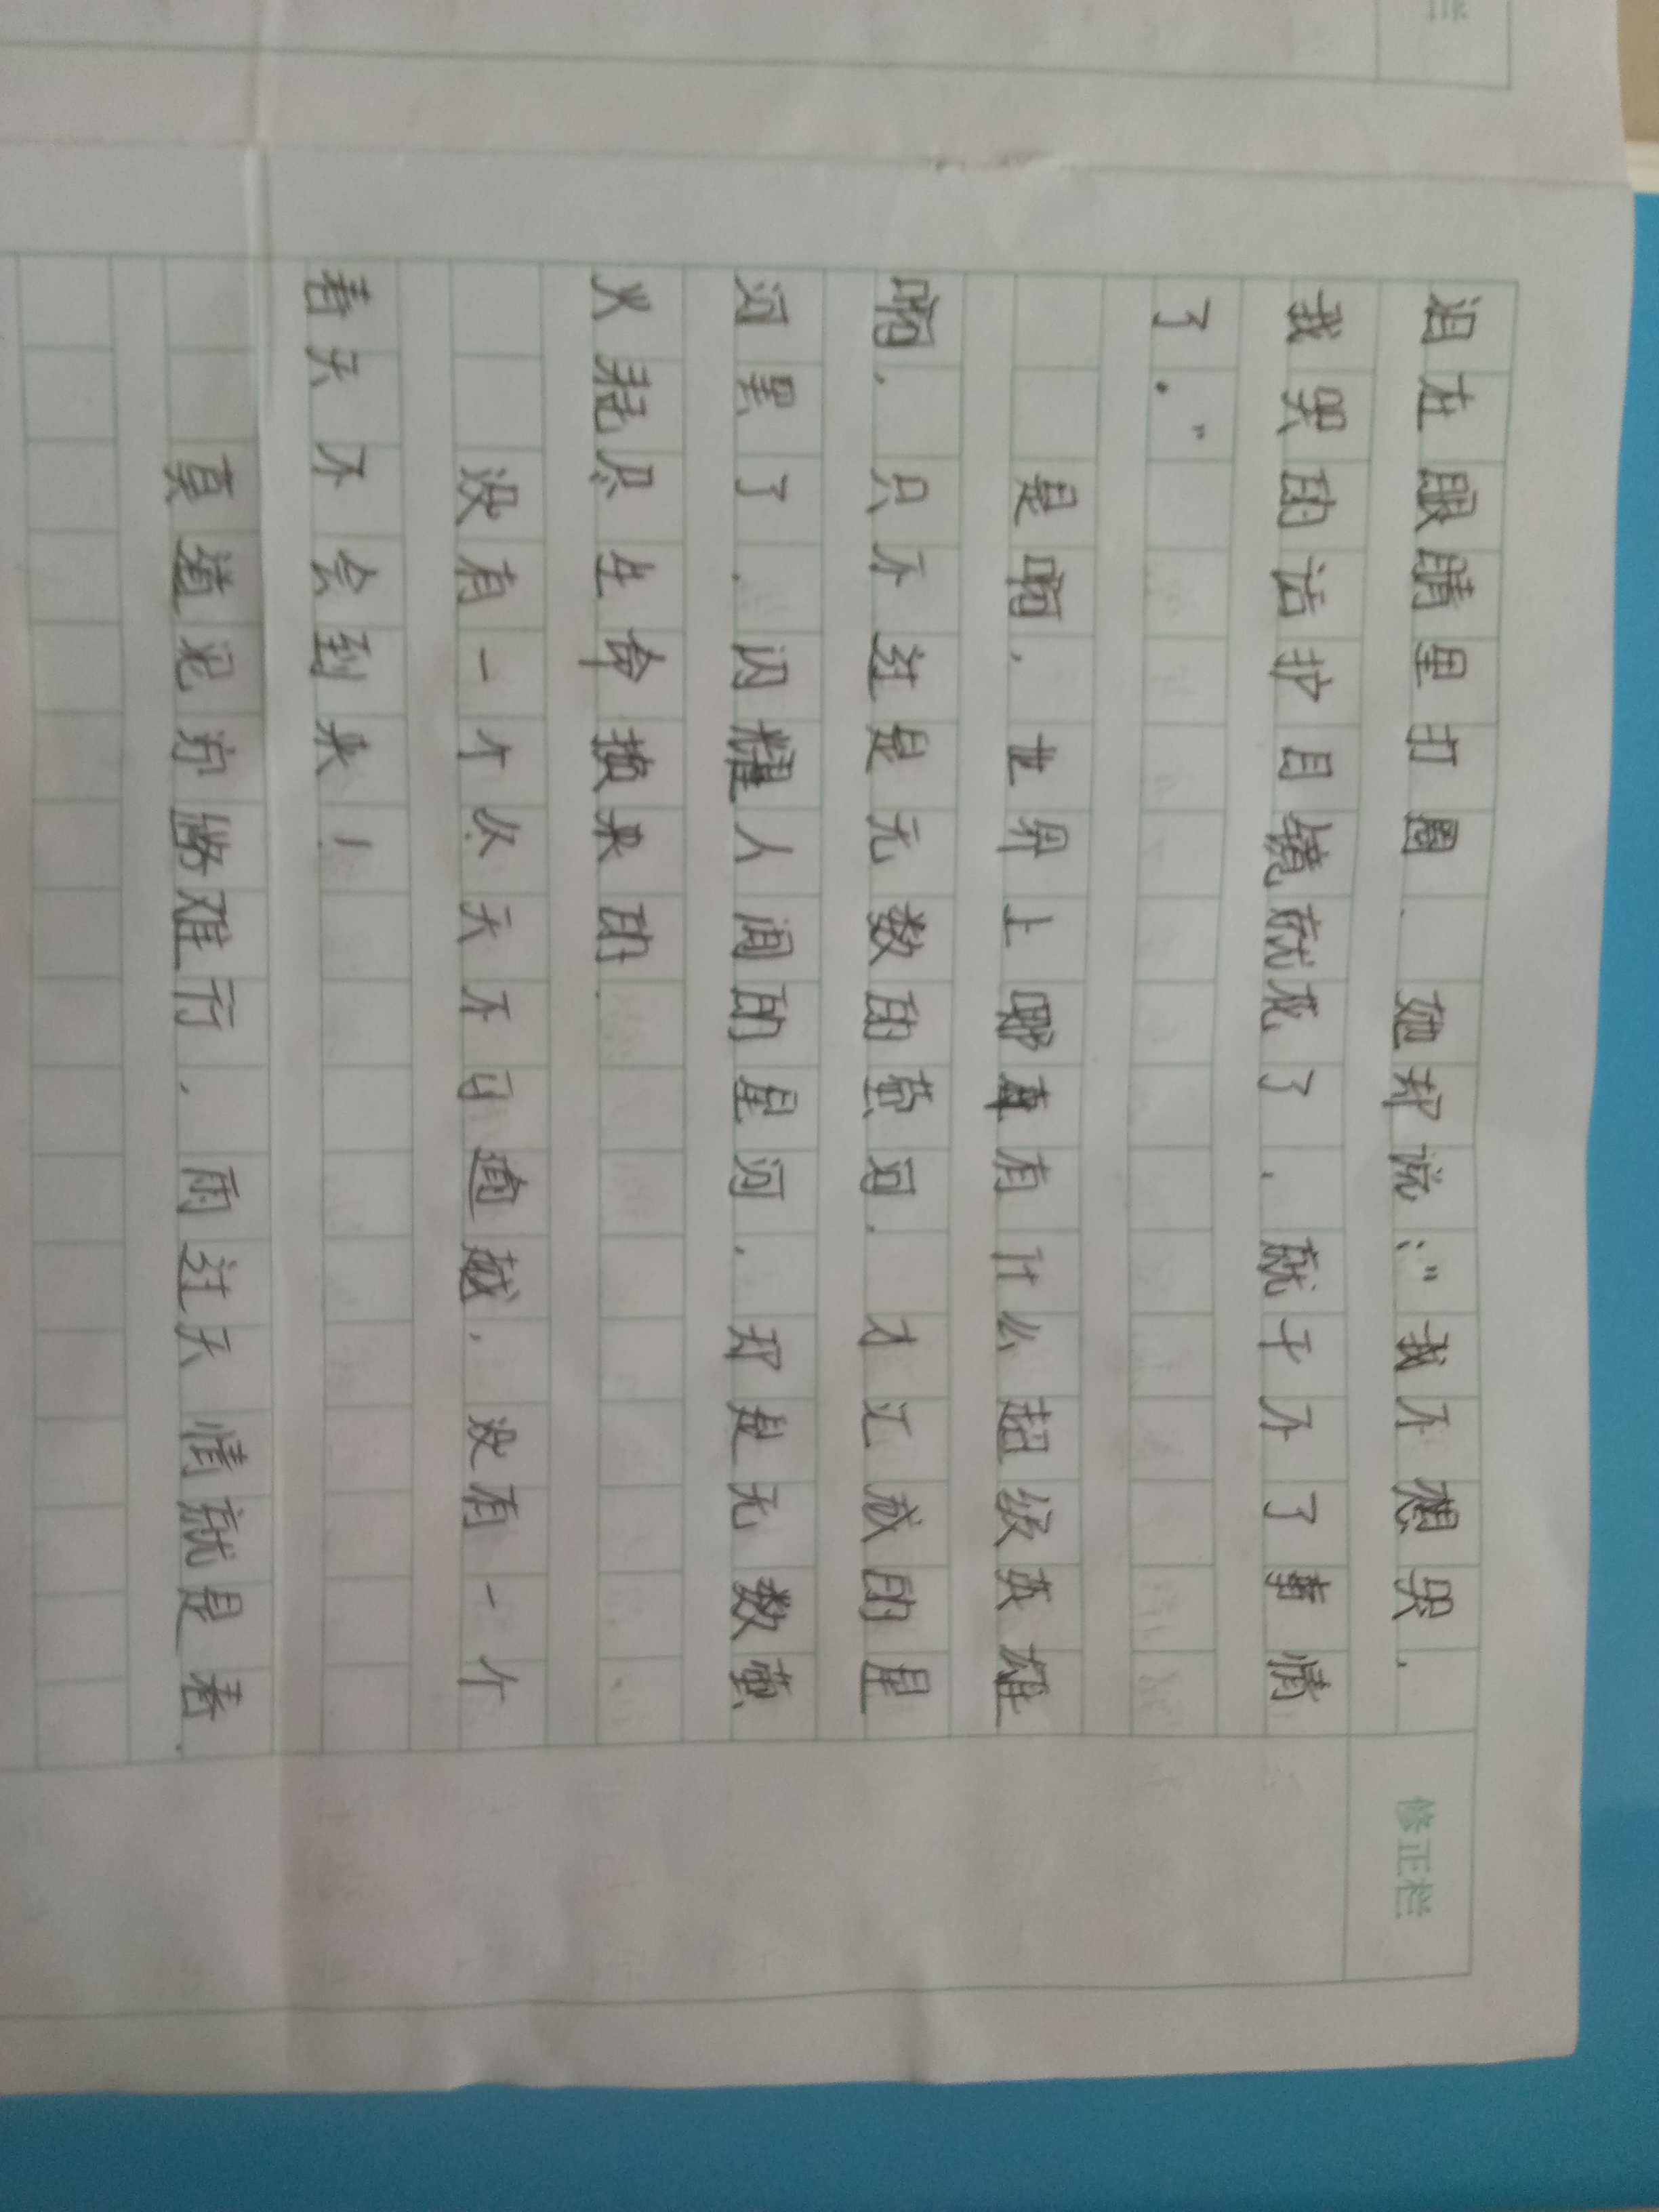 泪在眼睛里打圈、她却说:"我不想哭,
我哭的话护目镜就花了、就干不了事情
了。"
是啊,世界上哪真有什么超级英雄
啊,只不过是无数的萤河,才汇成的星
河黑了、闪耀人间的星河、却是无数萤
火耗尽生命换来的.
没有一个冬天不可逾越,没有一个
春天不会到来!
莫道见穷路难行,雨过天情就是春.
修正栏
栏